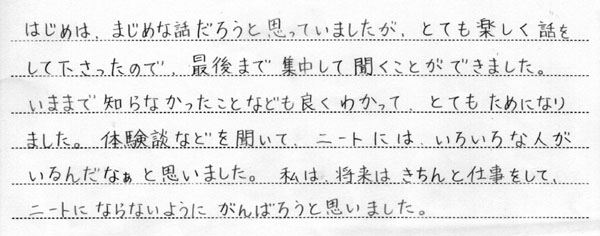 はじめは、まじめな話だろうと思っていましたが、とても楽しく話を
して下さったので、最後まで集中して聞くことができました。
いままで知らなかったことなども良くわかって、とてもためになり
ました。体験談などを聞いて、ニートには、いろいろな人が
いるんだなぁと思いました。私は、将来はきちんと仕事をして、
ニートにならないようにがんばろうと思いました。